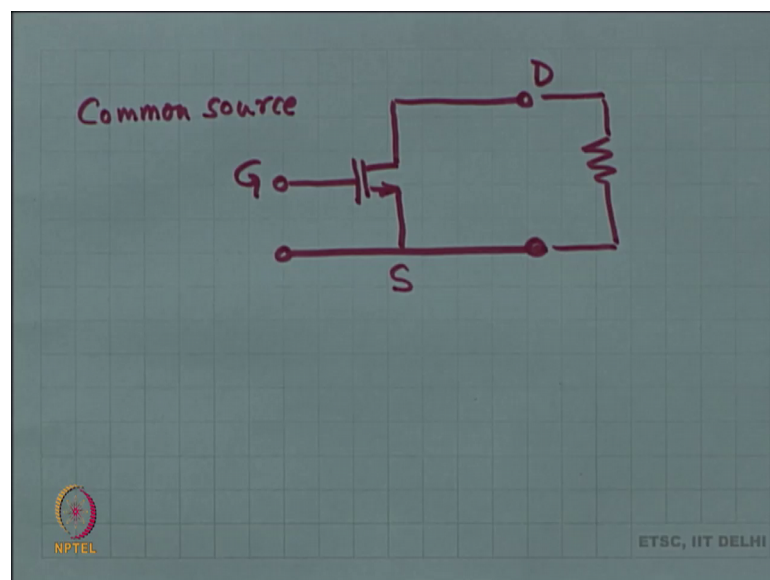 D
Common source
G
S
NPTEL
ETSC, IIT DELHI